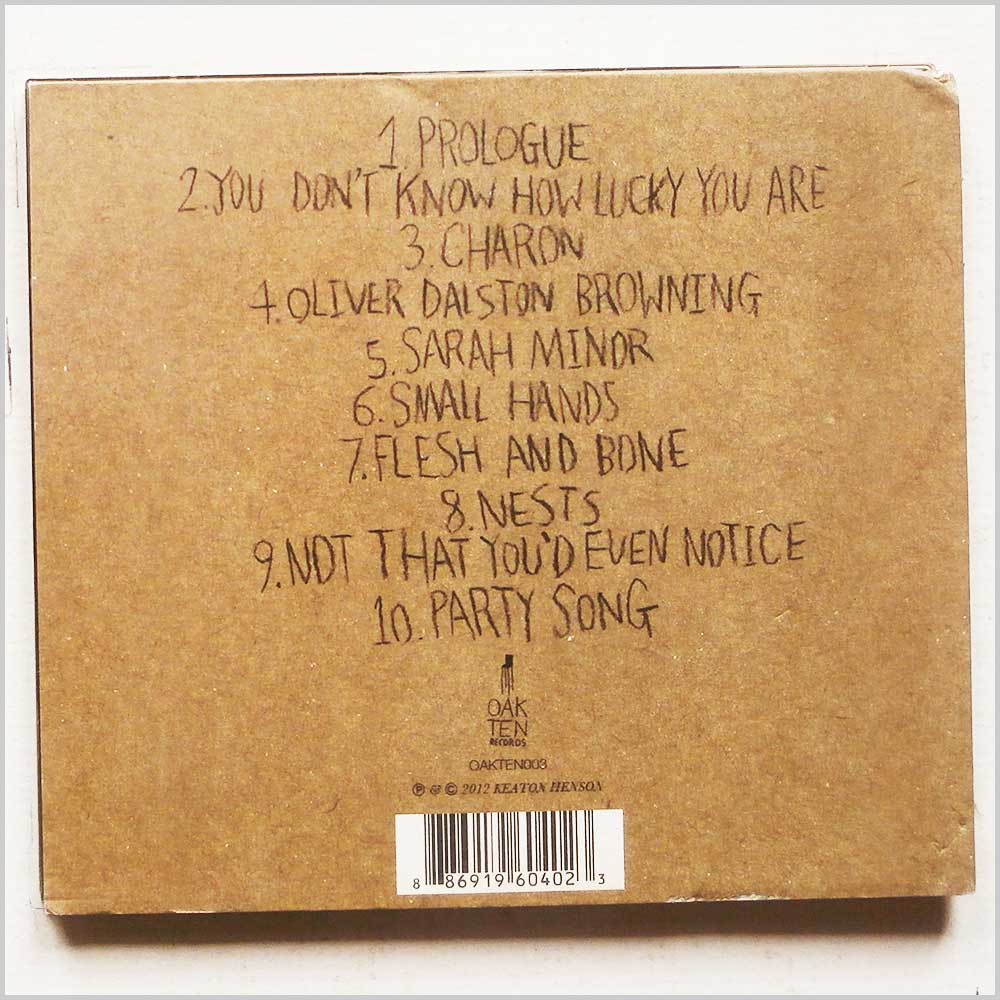 1. PROLOGUE
2. YOU DON'T KNOW HOW LUCKY YOU ARE
3. CHARON
4. OLIVER DALSTON BROWNING
5. SARAH MINOR
6. SMALL HANDS
7. FLESH AND BONE
8. NESTS
9. NOT THAT YOU'D EVEN NOTICE
10. PARTY SONG
OAK
TEN
RECORDS
OAKTEN003
℗ & © 2012 KEATON HENSON
8 86919 60402 3